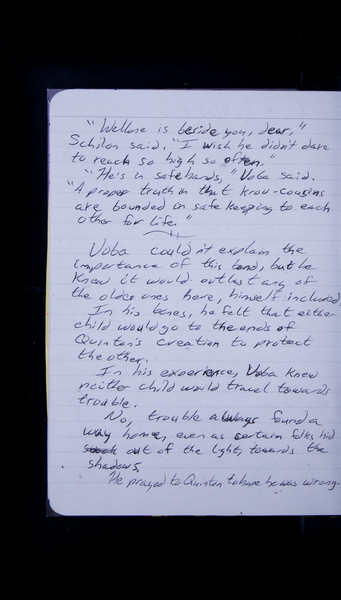 "Wellone is beside you, dear,"
Schilon said. "I wish he didn't dare
to reach so high so often."
"He's in safe hands," Voba said.
"A proper truth in that krov-cousins
are bounded in safe keeping to each
other for life."
Voba couldn't explain the
importance of this bond, but he
knew it would outlast any of
the older ones here, himself included.
In his bones, he felt that either
child would go to the ends of
Quinton's creation to protect
the other.
In his experience, Voba knew
neither child would travel towards
trouble.
No, trouble always found a
way home, even as certain folks hid
out of the light, towards the
shadows.
He prayed to Quinton to hope he was wrong.